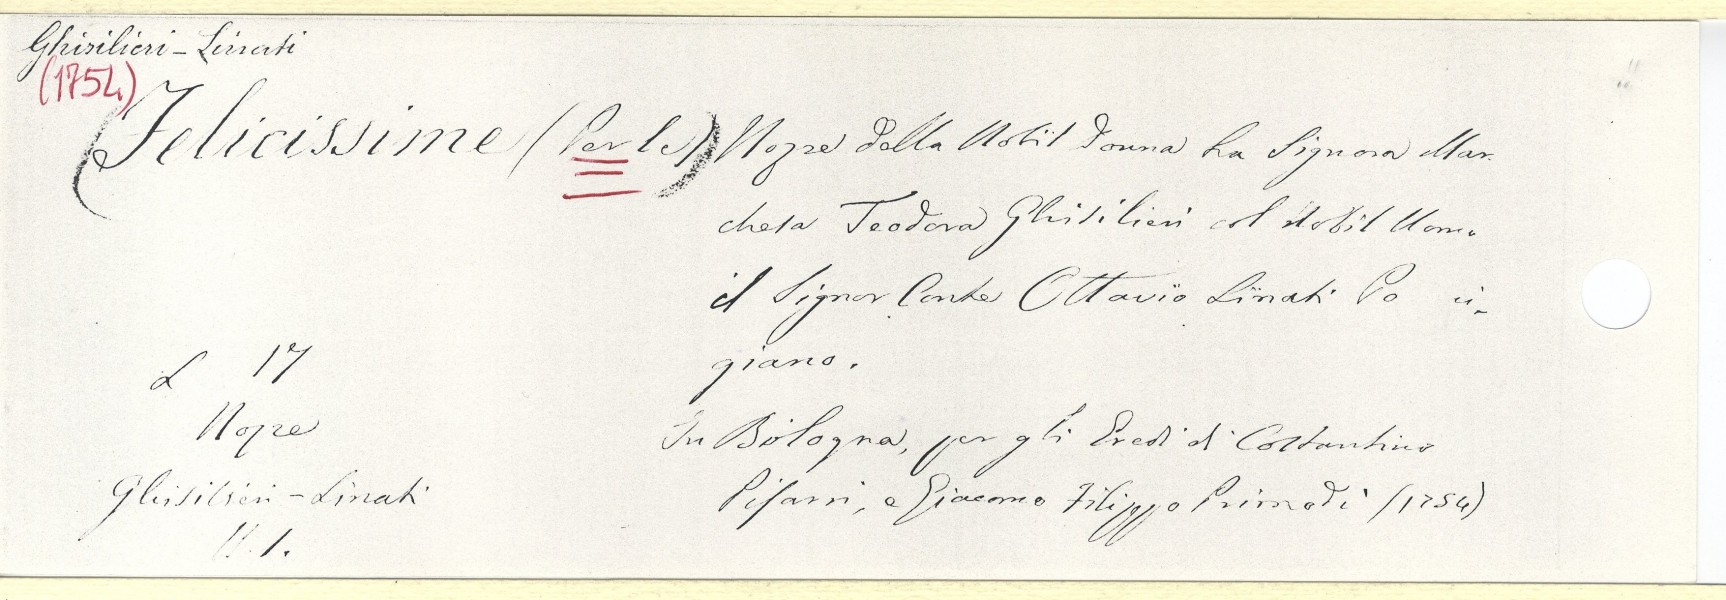 Ghisilieri - Linati
(1754)
(Felicissime (Per le)) Nozze della Nobil Donna La Signora Mar-
chesa Teodora Ghisilieri col Nobil Uomo
il Signor Conte Ottavio Linati Po
giano.
L 17
Nozze
Ghisilieri - Linati
N. 1.
In Bologna, per gli Eredi di Costantino
Pisarri, e Giacomo Filippo Primodì (1754)